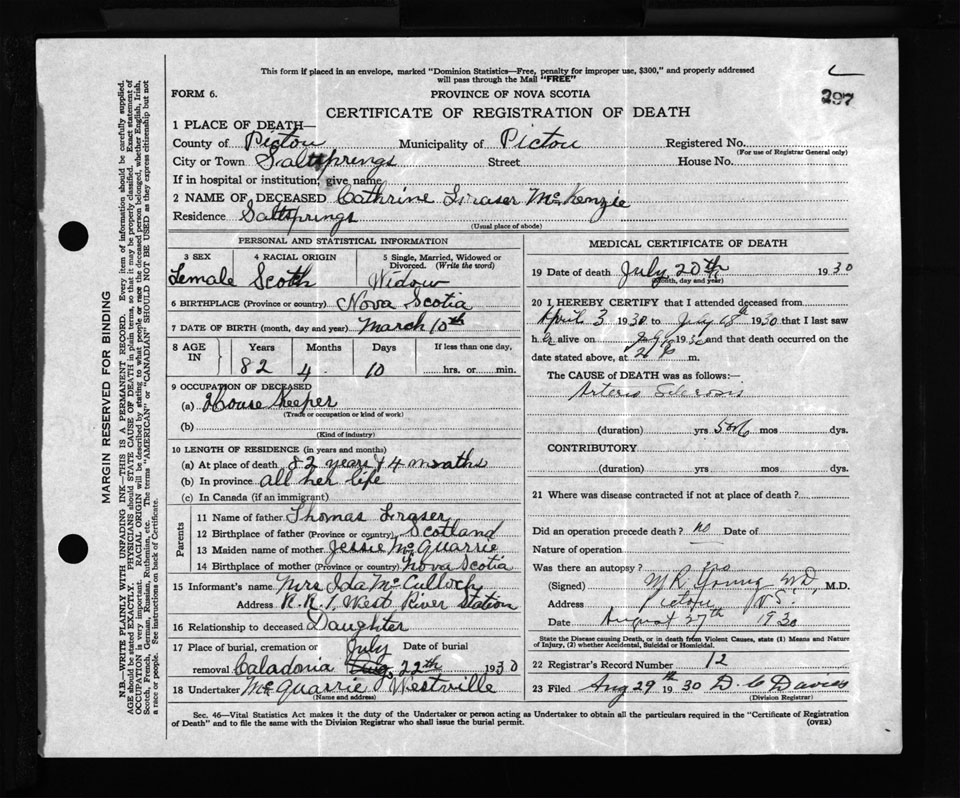 This form if placed in an envelope, marked "Dominion Statistics—Free, penalty for improper use, $300," and properly addressed
will pass through the Mail "FREE"
297
FORM 6.
PROVINCE OF NOVA SCOTIA
CERTIFICATE OF REGISTRATION OF DEATH
1 PLACE OF DEATH—
County of Pictou Municipality of Pictou Registered No.
(For use of Registrar General only)
City or Town Saltsprings Street House No.
If in hospital or institution, give name
2 NAME OF DECEASED Cathrine Fraser McKenzie
Residence Saltsprings
(Usual place of abode)
PERSONAL AND STATISTICAL INFORMATION
3 SEX 4 RACIAL ORIGIN 5 Single, Married, Widowed or
Divorced. (Write the word)
Female Scoth Widow
6 BIRTHPLACE (Province or country) Nova Scotia
7 DATE OF BIRTH (month, day and year) March 10th
8 AGE IN Years Months Days If less than one day,
82 4 10 hrs. or min.
9 OCCUPATION OF DECEASED
(a) House Keeper
(Trade or occupation or kind of work)
(b)
(Kind of industry)
10 LENGTH OF RESIDENCE (in years and months)
(a) At place of death 82 years & 4 months
(b) In province all her life
(c) In Canada (if an immigrant)
Parents
11 Name of father Thomas Fraser
12 Birthplace of father (Province or country) Scotland
13 Maiden name of mother Jessie McQuarrie
14 Birthplace of mother (Province or country) Nova Scotia
15 Informant's name Mrs Ida McCulloch
Address R.R.1, West River Station
16 Relationship to deceased Daughter
17 Place of burial, cremation or July Date of burial
removal Caladonia Aug 22th 1930
18 Undertaker McQuarrie, Westville
(Name and address)
MEDICAL CERTIFICATE OF DEATH
19 Date of death July 20th, 1930
(Month, day and year)
20 I HEREBY CERTIFY that I attended deceased from
April 3 1930 to July 18th 1930 that I last saw
h er alive on 1930 and that death occurred on the
date stated above, at m.
The CAUSE of DEATH was as follows:—
Arterio Sclerosis
(duration) yrs mos dys.
CONTRIBUTORY
(duration) yrs. mos dys.
21 Where was disease contracted if not at place of death?
Did an operation precede death? no Date of
Nature of operation
Was there an autopsy? no
(Signed) M R Young MD, M.D.
Address Pictou N.S.
Date August 27th 1930
State the Disease causing Death, or in death from Violent Causes, state (1) Means and Nature
of Injury, (2) whether Accidental, Suicidal or Homicidal.
22 Registrar's Record Number 12
23 Filed Aug 29th 1930 D. C Davies
(Division Registrar)
Sec. 46—Vital Statistics Act makes it the duty of the Undertaker or person acting as Undertaker to obtain all the particulars required in the "Certificate of Registration
of Death" and to file the same with the Division Registrar who shall issue the burial permit.
(OVER)
MARGIN RESERVED FOR BINDING
N.B.—WRITE PLAINLY WITH UNFADING INK—THIS IS A PERMANENT RECORD. Every item of information should be carefully supplied.
AGE should be stated EXACTLY. PHYSICIANS should STATE CAUSE OF DEATH in plain terms, so that it may be properly classified. Exact statement of
OCCUPATION is very important. RACIAL ORIGIN will be described by stating to what people or race the deceased person belonged, whether English, Irish,
Scotch, French, German, Russian, Ruthenian, etc. The terms "AMERICAN" or "CANADIAN" SHOULD NOT BE USED as they express citizenship but not
a race or people. See instructions on back of Certificate.